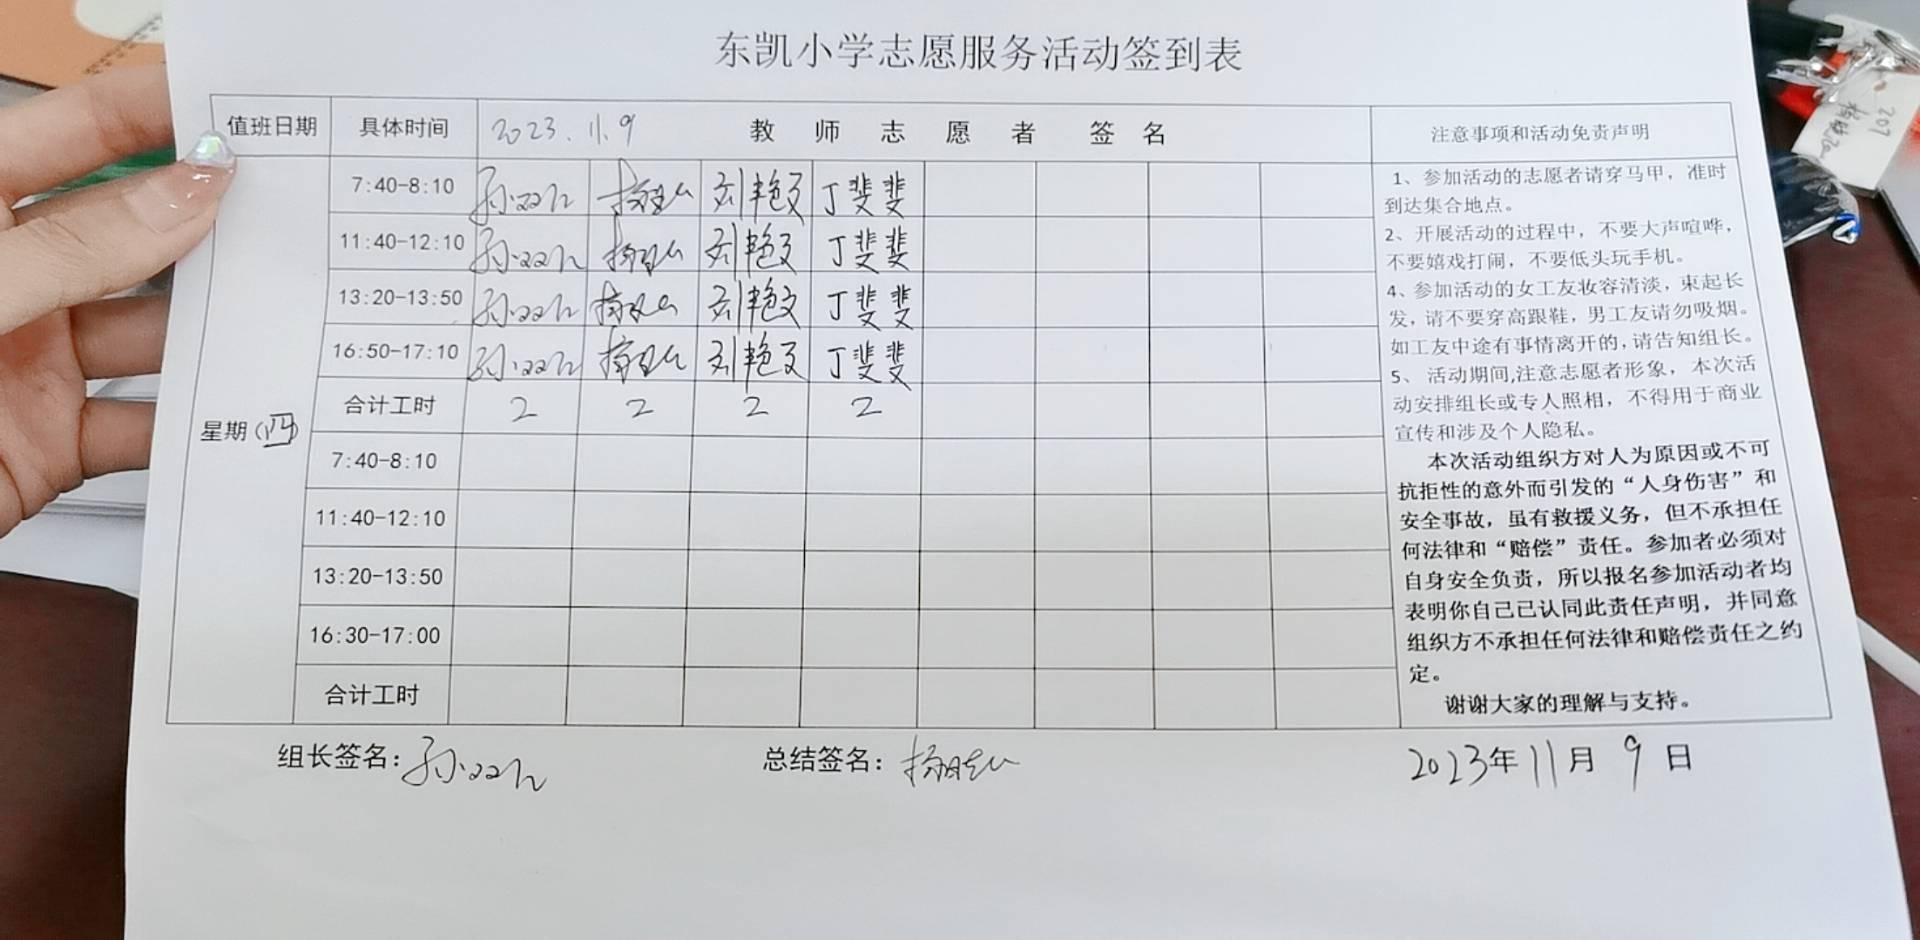 东凯小学志愿服务活动签到表
值班日期 具体时间 2023.11.9 教师志愿者签名 注意事项和活动免责声明
7:40-8:10 刘艳文 丁斐斐
11:40-12:10 刘艳文 丁斐斐
13:20-13:50 刘艳文 丁斐斐
16:50-17:10 刘艳文 丁斐斐
合计工时 2 2 2 2
星期(四)
7:40-8:10
11:40-12:10
13:20-13:50
16:30-17:00
合计工时
1、参加活动的志愿者请穿马甲，准时
到达集合地点。
2、开展活动的过程中，不要大声喧哗，
不要嬉戏打闹，不要低头玩手机。
4、参加活动的女工友妆容清淡，束起长
发，请不要穿高跟鞋，男工友请勿吸烟。
如工友中途有事情离开的，请告知组长。
5、 活动期间,注意志愿者形象，本次活
动安排组长或专人照相，不得用于商业
宣传和涉及个人隐私。
本次活动组织方对人为原因或不可
抗拒性的意外而引发的“人身伤害”和
安全事故，虽有救援义务，但不承担任
何法律和“赔偿”责任。参加者必须对
自身安全负责，所以报名参加活动者均
表明你自己已认同此责任声明，并同意
组织方不承担任何法律和赔偿责任之约
定。
谢谢大家的理解与支持。
组长签名： 总结签名： 2023年11月9日
207